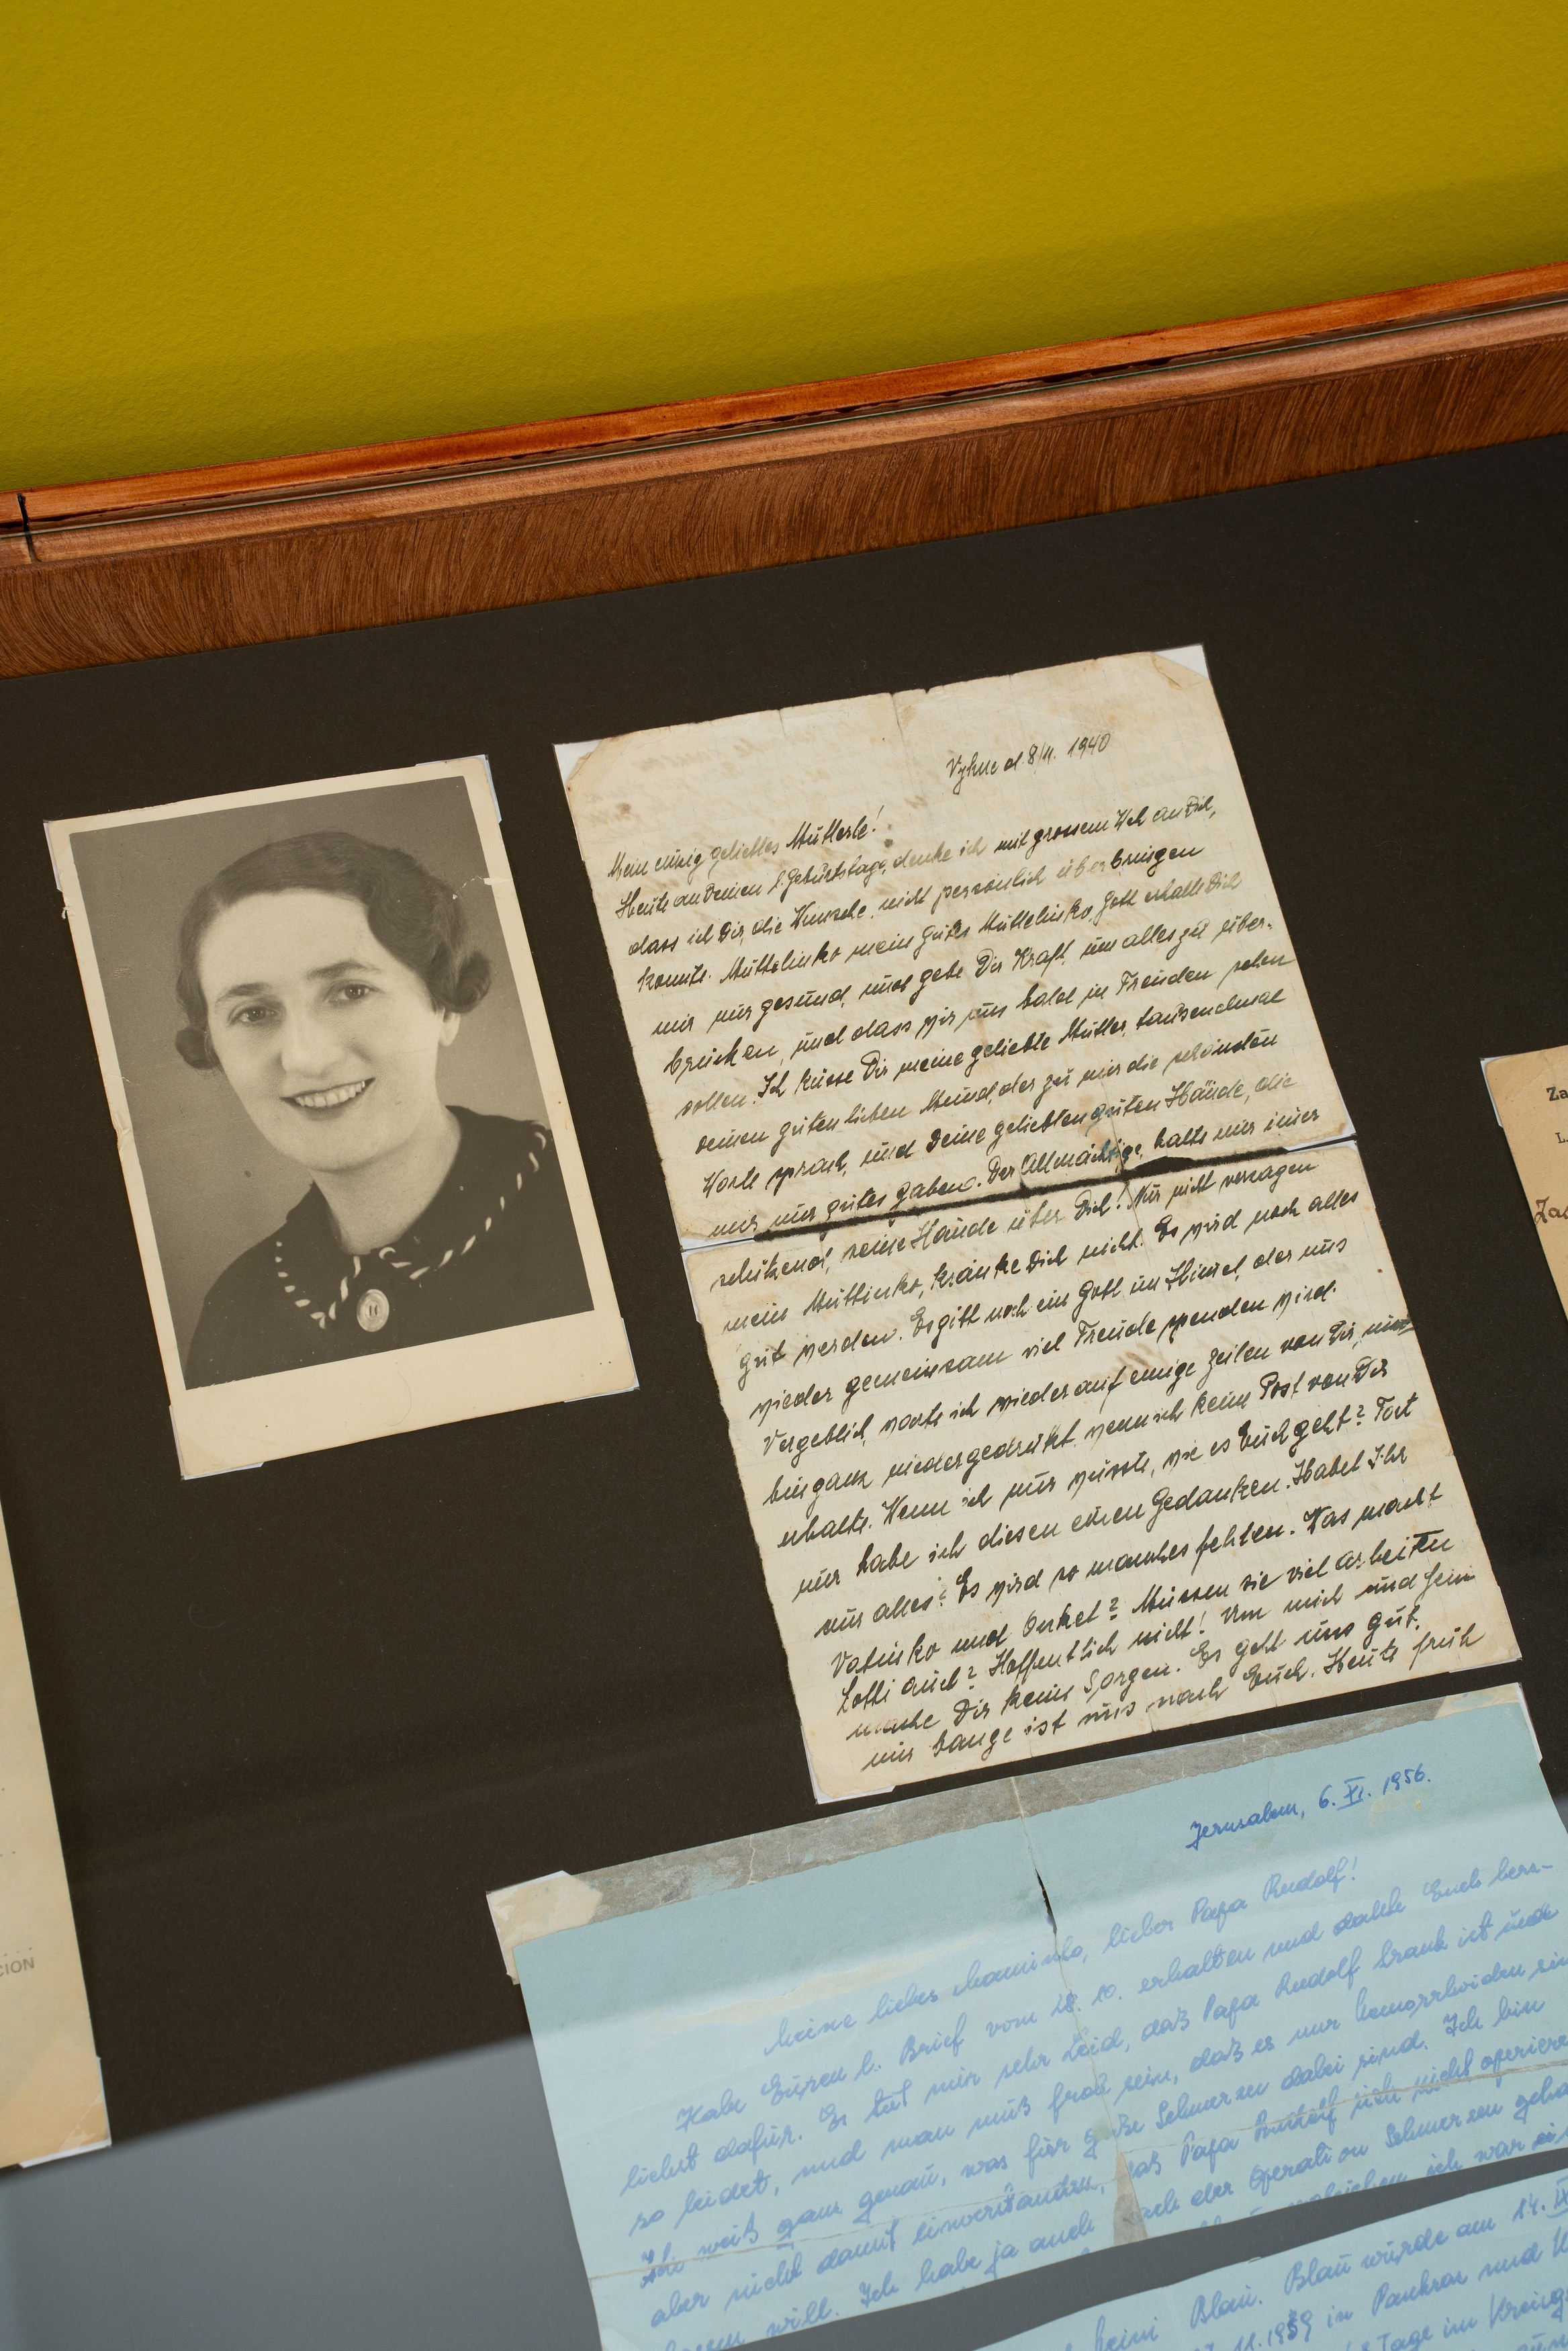 Vyhne d. 8/11. 1940
Mein einzig geliebtes Mütterle!
Heute an Deinem l. Geburtstage, denke ich mit grossem Weh an Dich,
dass ich Dir, die Wünsche, nicht persönlich überbringen
konnte. Müttelinko mein gutes Müttelinko, Gott erhalte Dich
mir nur gesund, und gebe Dir Kraft, um alles zu über-
brücken, und dass wir uns bald in Freuden sehen
sollen. Ich küsse Dir meine geliebte Mutter, tausendmal
Deinen guten lieben Mund, der zu mir die schönsten
Worte sprach, und Deine geliebten guten Hände, die
mir nur gutes gaben. Der Allmächtige, halte nur immer
schützend, seine Hände über Dich! Nur nicht verzagen
mein Muttinko, kränke Dich nicht. Es wird noch alles
gut werden. Es gibt noch ein Gott im Himmel, der uns
wieder gemeinsam viel Freude spenden wird.
Vergeblich, warte ich wieder auf einige Zeilen von Dir,
bin ganz niedergedrückt, wenn ich keine Post von Dir
erhalte. Wenn ich nur wüsste, wie es Euch geht? Fort
nur habe ich diesen einen Gedanken. Habet Ihr
nur alles? Es wird so manches fehlen. Was macht
Vatinko und Onkel? Müssen sie viel arbeiten
Lotti auch? Hoffentlich nicht! Um mich und
mache Dir keine Sorgen. Es geht uns gut,
nur bange ist uns nach Euch. Heute früh
Jerusalem, 6. XI. 1956.
Meine liebes Maminko, lieber Papa Rudolf!
Habe Euren l. Brief vom 18. 10. erhalten und danke Euch herz-
lichst dafür. Es tut mir sehr Leid, daß Papa Rudolf krank ist und
so leidet, und man muß froh sein, daß es nur Hemorrhoiden sin
Ich weiß ganz genau, was für große Schmerzen dabei sind. Ich bin
aber nicht damit einverstanden, daß Papa Rudolf sich nicht operiere
lassen will. Ich habe ja auch nach der Operation Schmerzen geha
ich war
Blau. Blau wurde am 14. IX
11. 1939 in Pankraz und
Tage im Kreisg
Za
L.
Za
CION